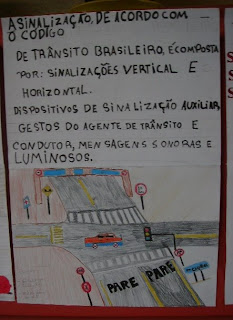 A SINALIZAÇÃO, DE ACORDO COM
O CÓDIGO
DE TRÂNSITO BRASILEIRO, É COMPOSTA
POR: SINALIZAÇÕES VERTICAL E
HORIZONTAL.
DISPOSITIVOS DE SINALIZAÇÃO AUXILIAR,
GESTOS DO AGENTE DE TRÂNSITO E
CONDUTOR, MENSAGENS SONORAS E
LUMINOSOS.
PARE PARE